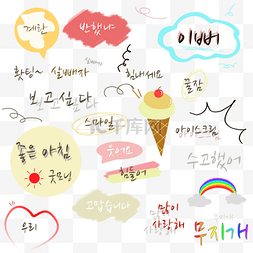 계란
바빴나
이뻐
홧팅~
살빼자
살빼자
힘내세요
꿀잠
보고싶다
스마일
아이스크림
좋은 아침
굿모닝
웃어요
힘들어
수고했어
우리
고맙습니다
많이
사랑해
무지개